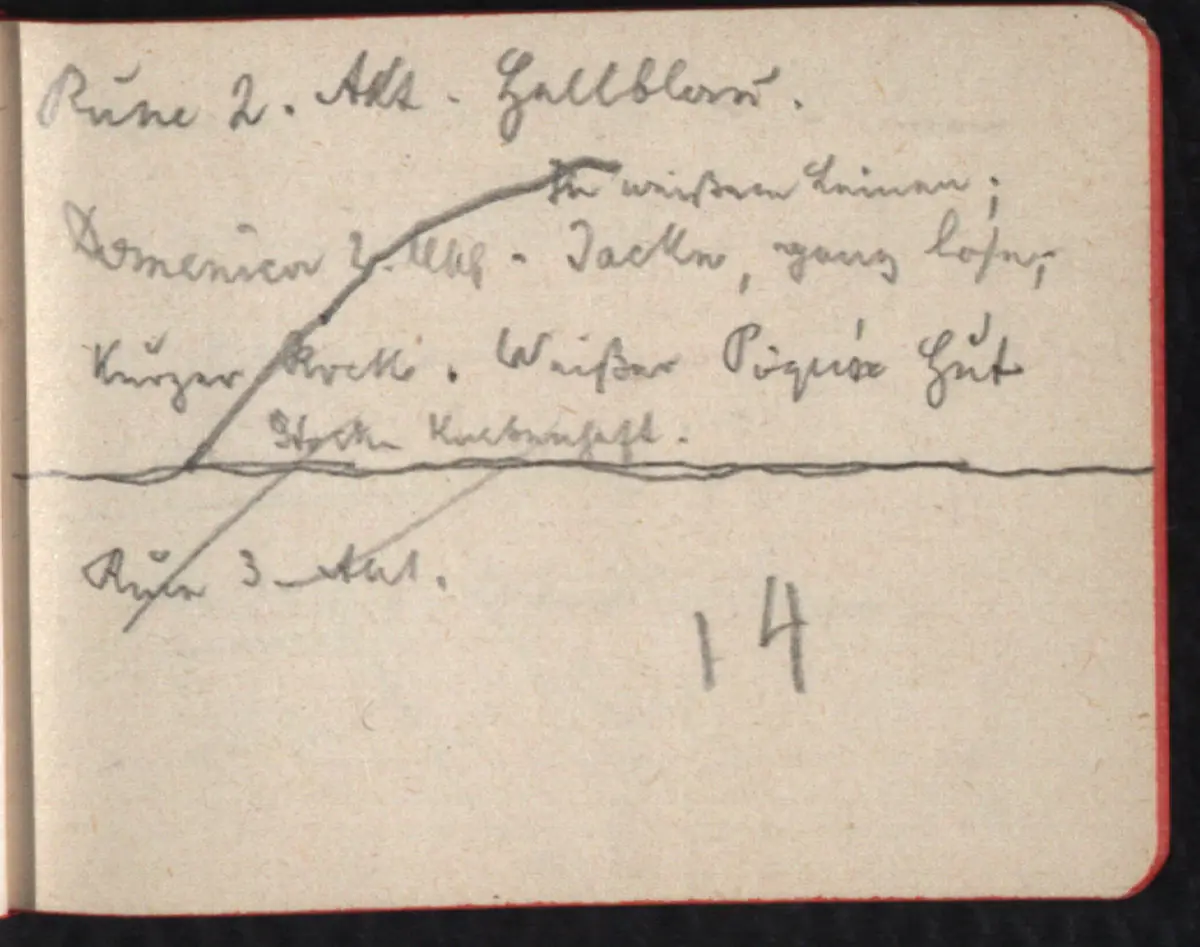 Rune 2. Akt. Hellblau.
In weißem Leinen;
Domenica 2. Jacke, ganz lose,
Kurzer Rock. Weißer Piqué Hut
Knabenhaft.
Rune 3 Akt.
14